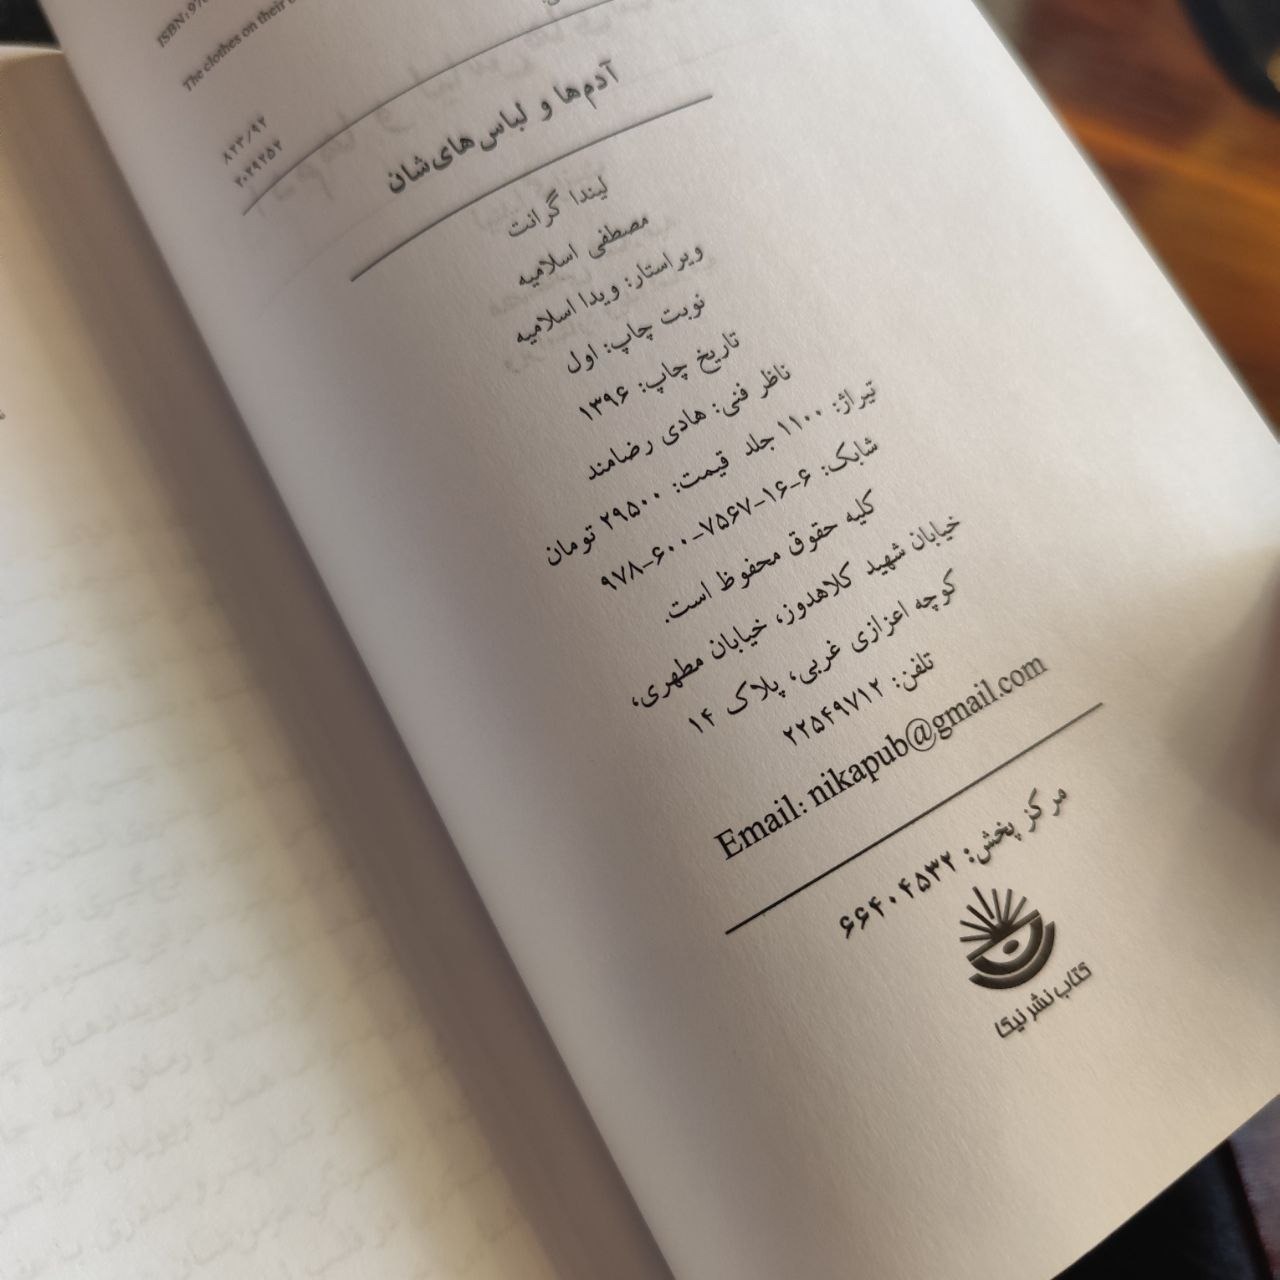 ISBN: 978
The clothes on their
۸۲۳/۹۲
۲۰۲۹۲۵۲
آدم‌ها و لباس‌های‌شان
لیندا گرانت
مصطفی اسلامیه
ویراستار: ویدا اسلامیه
نوبت چاپ: اول
تاریخ چاپ: ۱۳۹۶
ناظر فنی: هادی رضامند
تیراژ: ۱۱۰۰ جلد قیمت: ۲۹۵۰۰ تومان
شابک: ۶-۱۶-۷۵۶۷-۶۰۰-۹۷۸
کلیه حقوق محفوظ است.
خیابان شهید کلاهدوز، خیابان مطهری،
کوچه اعزازی غربی، پلاک ۱۴
تلفن: ۲۲۵۴۹۷۱۲
Email: nikapub@gmail.com
مرکز پخش: ۶۶۴۰۴۵۳۲
کتاب نشر نیکا